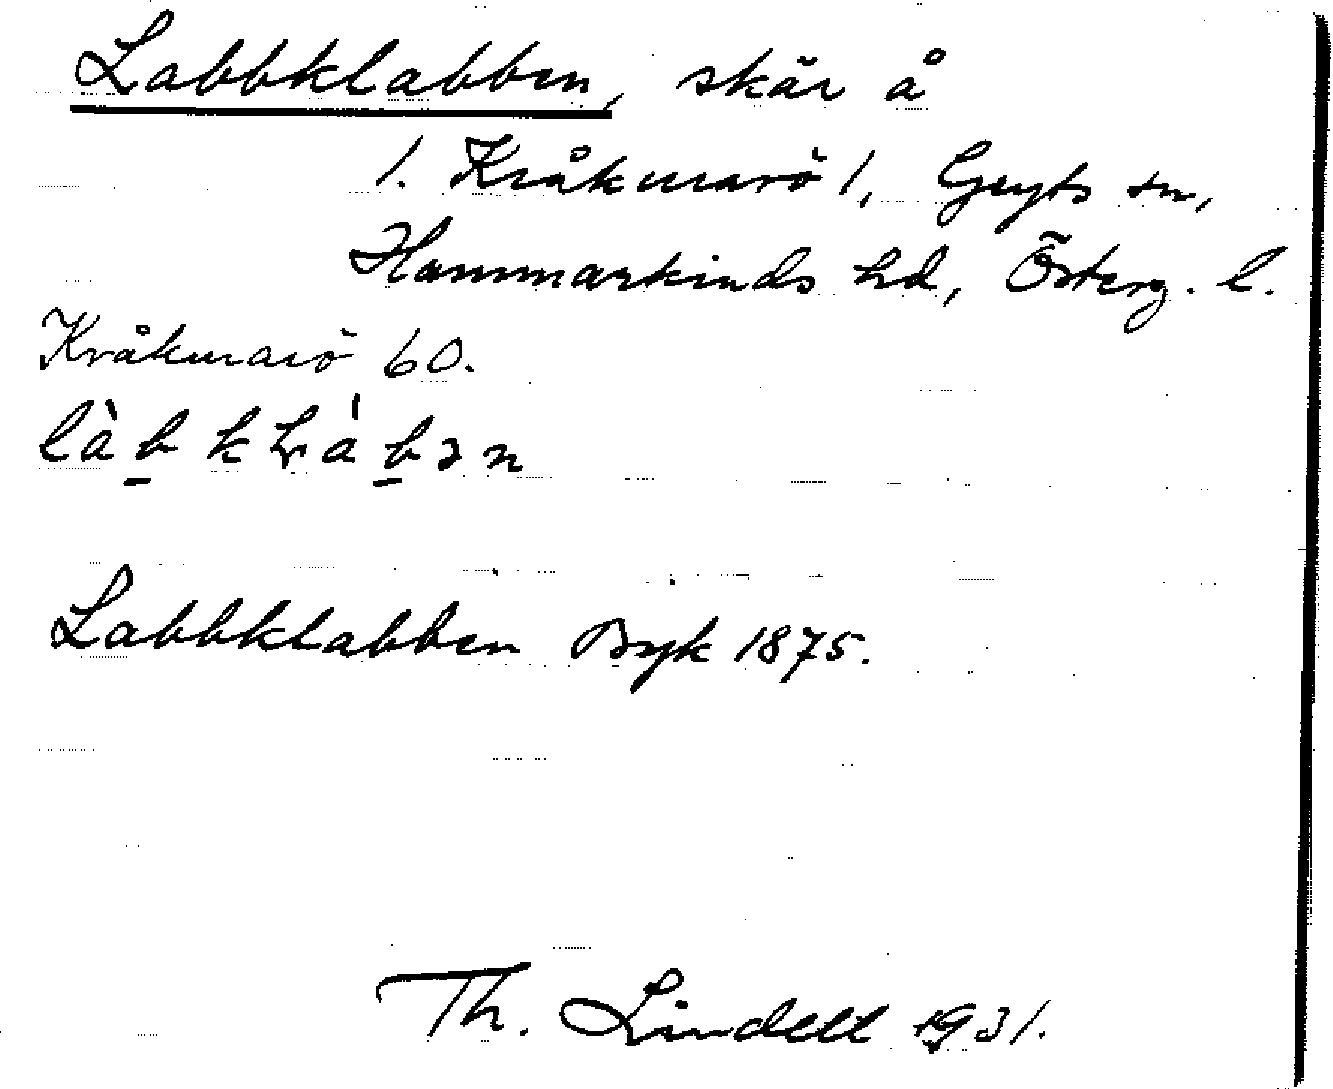 Labbklabben, skär å
1. Kråkmarö 1, Gryts sn,
Hammarkinds hd, Österg. l.
Kråkmarö 60.
làb̲kɫáb̲ən
Labbklabben Byk 1875.
Th. Lindell 1931.